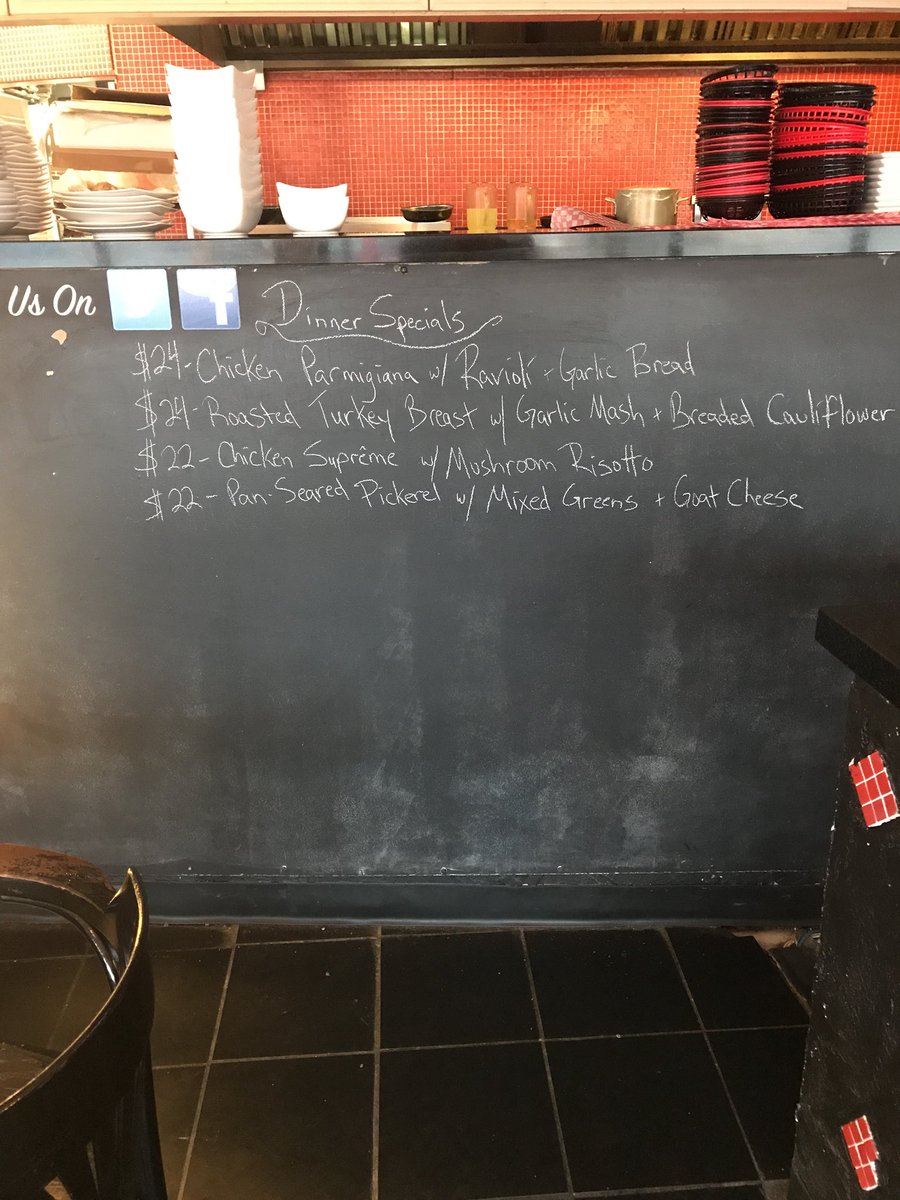 Us On
Dinner Specials
$24-Chicken Parmigiana w/ Ravioli + Garlic Bread
$24-Roasted Turkey Breast w/ Garlic Mash + Breaded Cauliflower
$22-Chicken Suprême w/ Mushroom Risotto
$22-Pan-Seared Pickerel w/ Mixed Greens + Goat Cheese